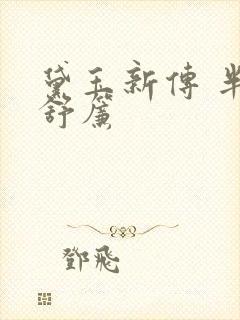 黛玉新傳 半
舒簾
鄧飛